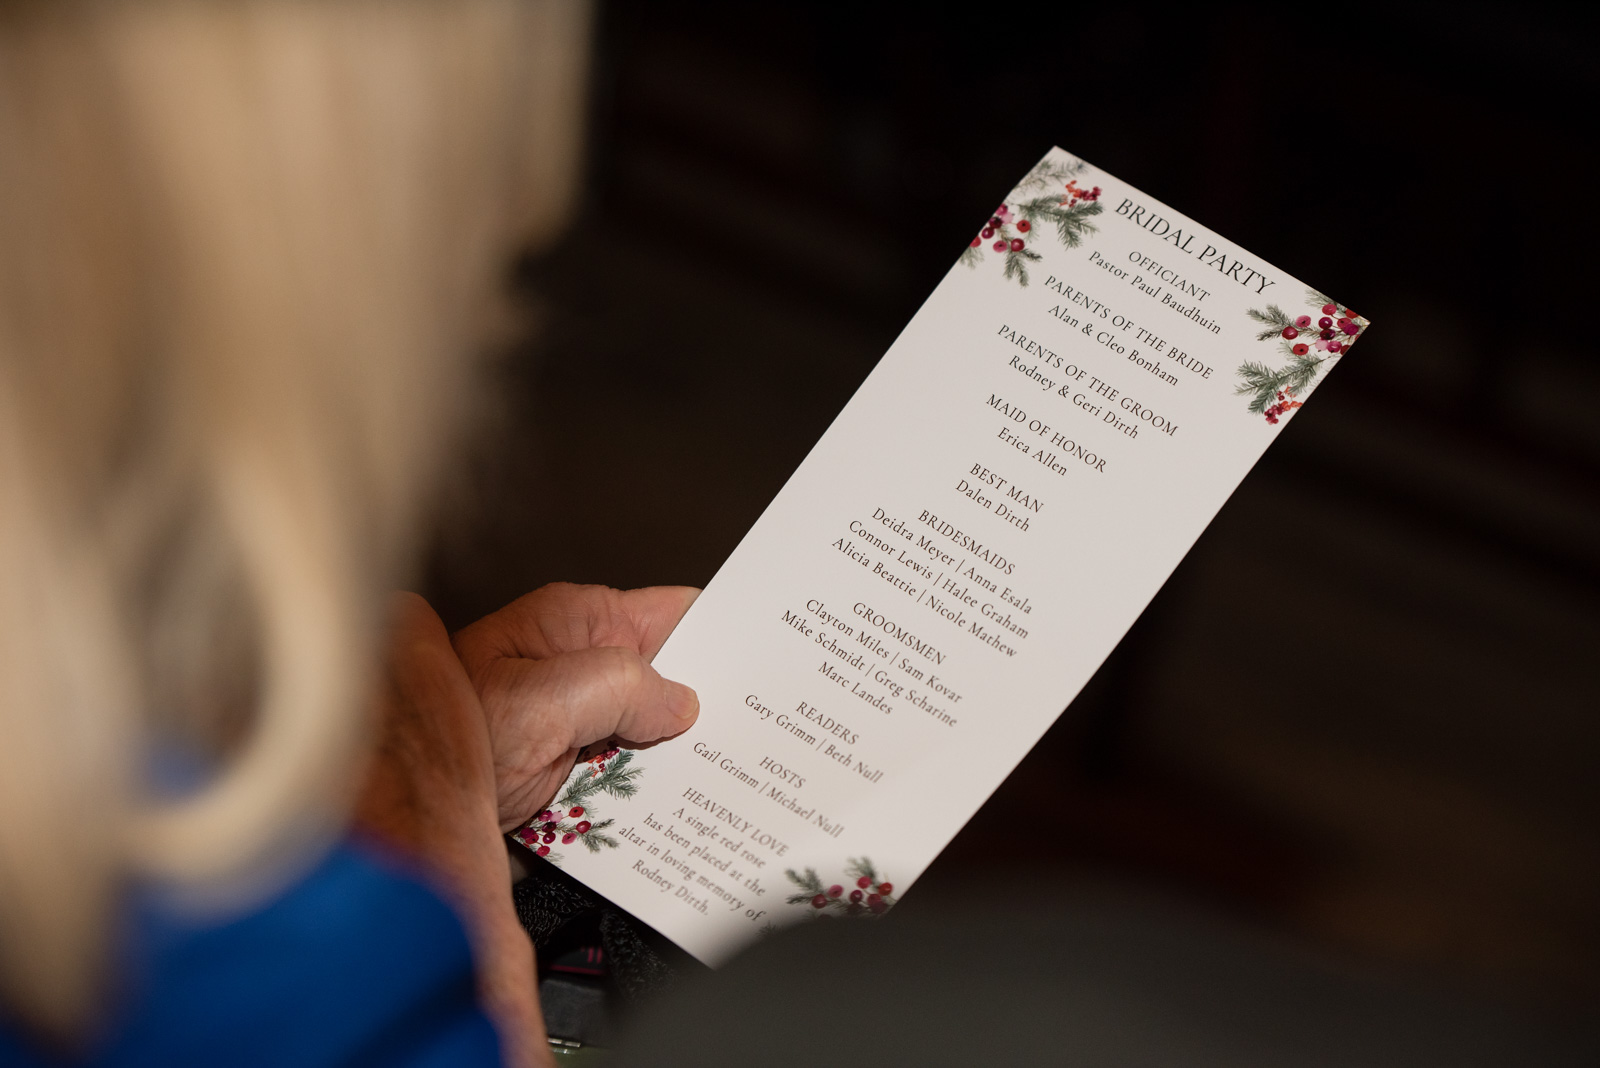 BRIDAL PARTY
OFFICIANT
Pastor Paul Baudhuin
PARENTS OF THE BRIDE
Alan & Cleo Bonham
PARENTS OF THE GROOM
Rodney & Geri Dirth
MAID OF HONOR
Erica Allen
BEST MAN
Dalen Dirth
BRIDESMAIDS
Deidra Meyer | Anna Esala
Connor Lewis | Halee Graham
Alicia Beattie | Nicole Mathew
GROOMSMEN
Clayton Miles | Sam Kovar
Mike Schmidt | Greg Scharine
Marc Landes
READERS
Gary Grimm | Beth Null
HOSTS
Gail Grimm | Michael Null
HEAVENLY LOVE
A single red rose
has been placed at the
altar in loving memory of
Rodney Dirth.